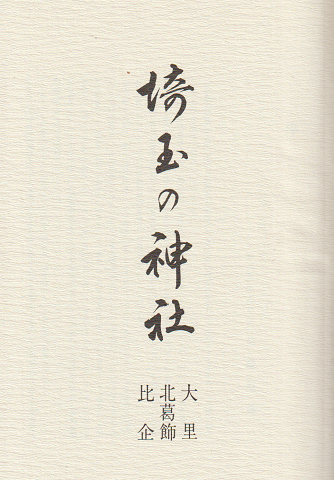 埼玉の神社
大里
北葛飾
比企